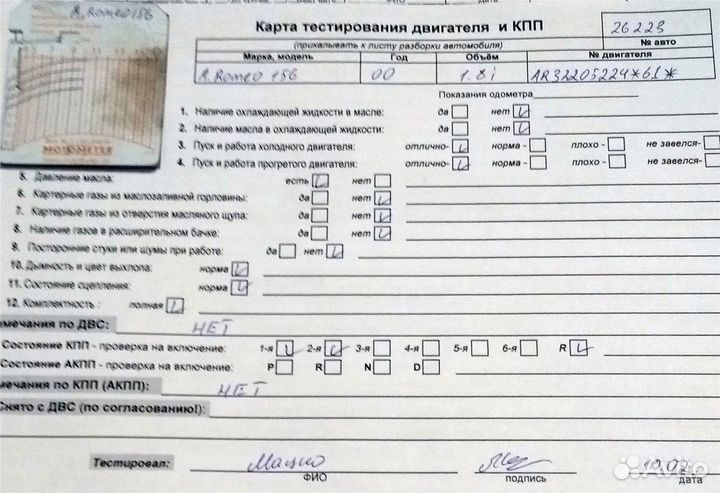 A. Romeo 156
MOTOMETER
Карта тестирования двигателя и КПП
26223
(прикалывать к листу разборки автомобиля)
№ авто
Марка, модель Год Объём № двигателя
A. Romeo 156 00 1.8i AR32205224*61*
Показания одометра
1. Наличие охлаждающей жидкости в масле: да нет
2. Наличие масла в охлаждающей жидкости: да нет
3. Пуск и работа холодного двигателя: отлично- норма - плохо - не завелся-
4. Пуск и работа прогретого двигателя: отлично- норма - плохо - не завелся-
5. Давление масла: есть нет
6. Картерные газы из маслозаливной горловины: да нет
7. Картерные газы из отверстия масляного щупа: да нет
8. Наличие газов в расширительном бачке: да нет
9. Посторонние стуки или шумы при работе: да нет
10. Дымность и цвет выхлопа: норма
11. Состояние сцепления: норма
12. Комплектность : полная
мечания по ДВС: НЕТ
Состояние КПП - проверка на включение: 1-я 2-я 3-я 4-я 5-я 6-я R
Состояние АКПП - проверка на включение: P R N D
мечания по КПП (АКПП): НЕТ
Снято с ДВС (по согласованию!):
Тестировал: 10.02
ФИО подпись дата
Avito